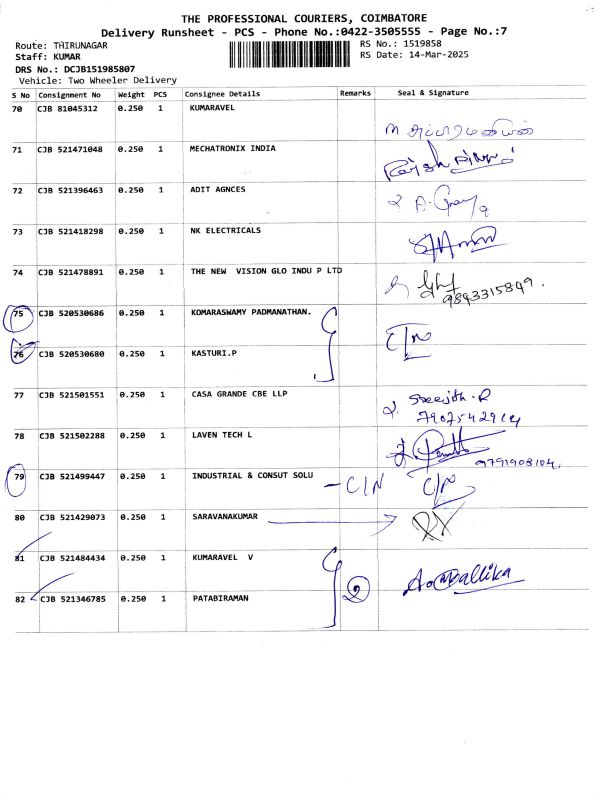 THE PROFESSIONAL COURIERS, COIMBATORE
Delivery Runsheet - PCS - Phone No.:0422-3505555 - Page No.:7
Route: THIRUNAGAR RS No.: 1519858
Staff: KUMAR RS Date: 14-Mar-2025
DRS No.: DCJB151985807
Vehicle: Two Wheeler Delivery
S No Consignment No Weight PCS Consignee Details Remarks Seal & Signature
70 CJB 81045312 0.250 1 KUMARAVEL
71 CJB 521471048 0.250 1 MECHATRONIX INDIA
72 CJB 521396463 0.250 1 ADIT AGNCES
73 CJB 521418298 0.250 1 NK ELECTRICALS
74 CJB 521478891 0.250 1 THE NEW VISION GLO INDU P LTD
9843315849.
75 CJB 520530686 0.250 1 KOMARASWAMY PADMANATHAN.
C/N
76 CJB 520530680 0.250 1 KASTURI.P
77 CJB 521501551 0.250 1 CASA GRANDE CBE LLP Sreejith.R
7907542914
78 CJB 521502288 0.250 1 LAVEN TECH L
9791908104.
79 CJB 521499447 0.250 1 INDUSTRIAL & CONSUT SOLU - C/N C/N
80 CJB 521429073 0.250 1 SARAVANAKUMAR
81 CJB 521484434 0.250 1 KUMARAVEL V
82 CJB 521346785 0.250 1 PATABIRAMAN 2